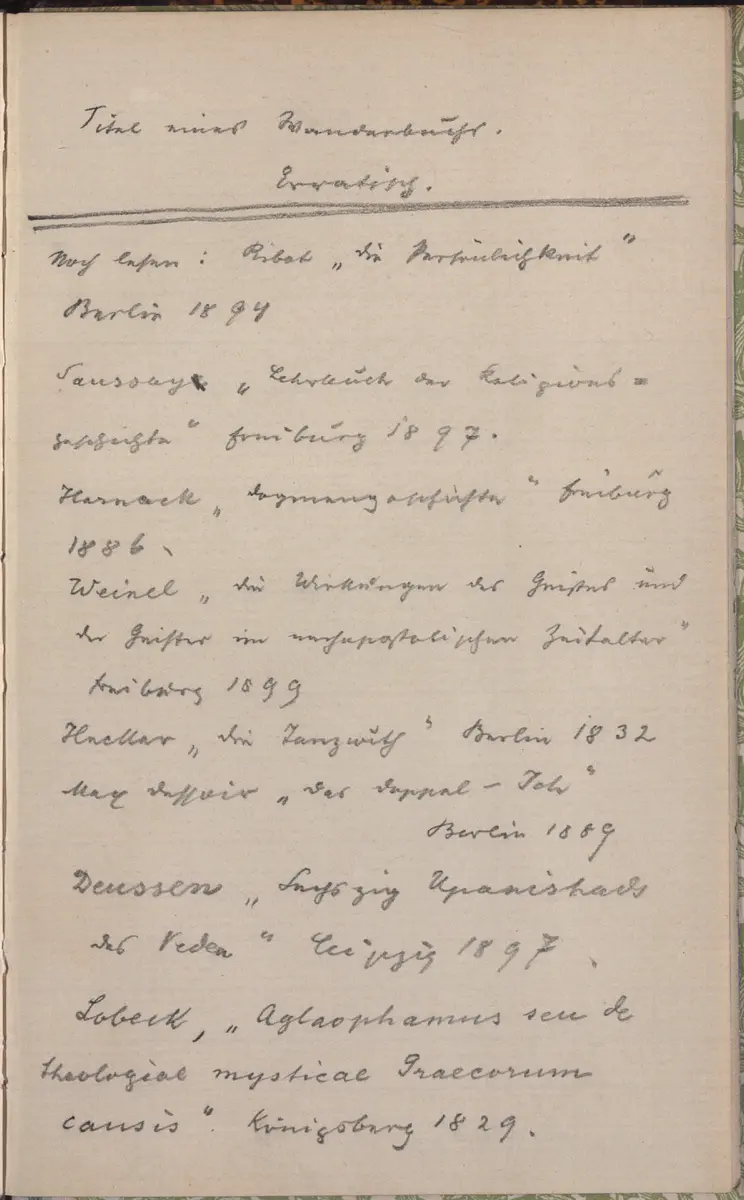 Titel eines Wanderbuchs.
Erratisch.
Noch lesen: Ribot „die Persönlichkeit"
Berlin 1894
Saussaye „Lehrbuch der Religions=
geschichte" Freiburg 1897.
Harnack „Dogmengeschichte" Freiburg
1886.
Weinel „die Wirkungen des Geistes und
der Geister im nachapostolischen Zeitalter"
Freiburg 1899
Hecker „die Tanzwuth" Berlin 1832
Max Dessoir „das Doppel-Ich"
Berlin 1889
Deussen „Sechszig Upanishads
des Veda" Leipzig 1897.
Lobeck, „Aglaophamus seu de
theologiae mysticae Graecorum
causis". Königsberg 1829.